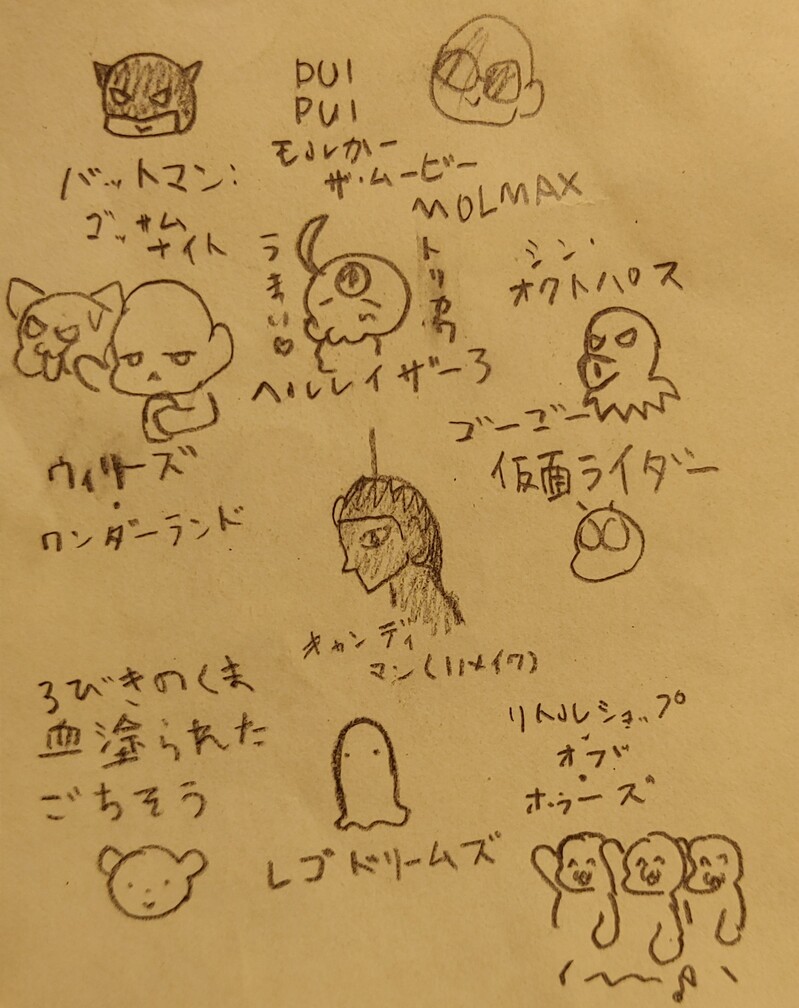 PUI
PUI
モルカー
ザ・ムービー
MOLMAX
バットマン:
ゴッサム
ナイト
うまい♡
ヘルレイザー3
シン・
オクトパス
ウィリーズ
・
ワンダーランド
ゴーゴー
仮面ライダー
キャンディ
マン(リメイク)
3びきのくま
血塗られた
ごちそう
レゴドリームズ
リトルショップ
・
オブ
・
ホラーズ